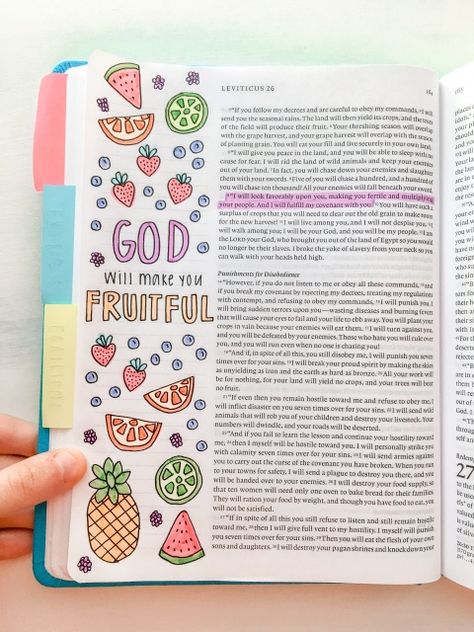 LEVITICUS 26
164
GOD
will make you
FRUITFUL
³"If you follow my decrees and are careful to obey my commands, ⁴I will
send you the seasonal rains. The land will then yield its crops, and the trees
of the field will produce their fruit. ⁵Your threshing season will overlap
with the grape harvest, and your grape harvest will overlap with the season
of planting grain. You will eat your fill and live securely in your own land.
⁶"I will give you peace in the land, and you will be able to sleep with no
cause for fear. I will rid the land of wild animals and keep your enemies
out of your land. ⁷In fact, you will chase down your enemies and slaughter
them with your swords. ⁸Five of you will chase a hundred, and a hundred of
you will chase ten thousand! All your enemies will fall beneath your sword.
⁹"I will look favorably upon you, making you fertile and multiplying
your people. And I will fulfill my covenant with you. ¹⁰You will have such a
surplus of crops that you will need to clear out the old grain to make room
for the new harvest! ¹¹I will live among you, and I will not despise you. ¹²I
will walk among you; I will be your God, and you will be my people. ¹³I am
the LORD your God, who brought you out of the land of Egypt so you would
no longer be their slaves. I broke the yoke of slavery from your neck so you
can walk with your heads held high.
Punishments for Disobedience
¹⁴"However, if you do not listen to me or obey all these commands, ¹⁵and
if you break my covenant by rejecting my decrees, treating my regulations
with contempt, and refusing to obey my commands, ¹⁶I will punish you. I
will bring sudden terrors upon you—wasting diseases and burning fevers
that will cause your eyes to fail and your life to ebb away. You will plant your
crops in vain because your enemies will eat them. ¹⁷I will turn against you,
and you will be defeated by your enemies. Those who hate you will rule over
you, and you will run even when no one is chasing you!
¹⁸"And if, in spite of all this, you still disobey me, I will punish you seven
times over for your sins. ¹⁹I will break your proud spirit by making the skies
as unyielding as iron and the earth as hard as bronze. ²⁰All your work will
be for nothing, for your land will yield no crops, and your trees will bear
no fruit.
²¹"If even then you remain hostile toward me and refuse to obey me, I
will inflict disaster on you seven times over for your sins. ²²I will send wild
animals that will rob you of your children and destroy your livestock. Your
numbers will dwindle, and your roads will be deserted.
²³"And if you fail to learn the lesson and continue your hostility toward
me, ²⁴then I myself will be hostile toward you. I will personally strike you
with calamity seven times over for your sins. ²⁵I will send armies against
you to carry out the curse of the covenant you have broken. When you run
to your towns for safety, I will send a plague to destroy you there, and you
will be handed over to your enemies. ²⁶I will destroy your food supply, so
that ten women will need only one oven to bake bread for their families.
They will ration your food by weight, and though you have food to eat, you
will not be satisfied.
²⁷"If in spite of all this you still refuse to listen and still remain hostile
toward me, ²⁸then I will give full vent to my hostility. I myself will punish
you seven times over for your sins. ²⁹Then you will eat the flesh of your own
sons and daughters. ³⁰I will destroy your pagan shrines and knock down your
165
27